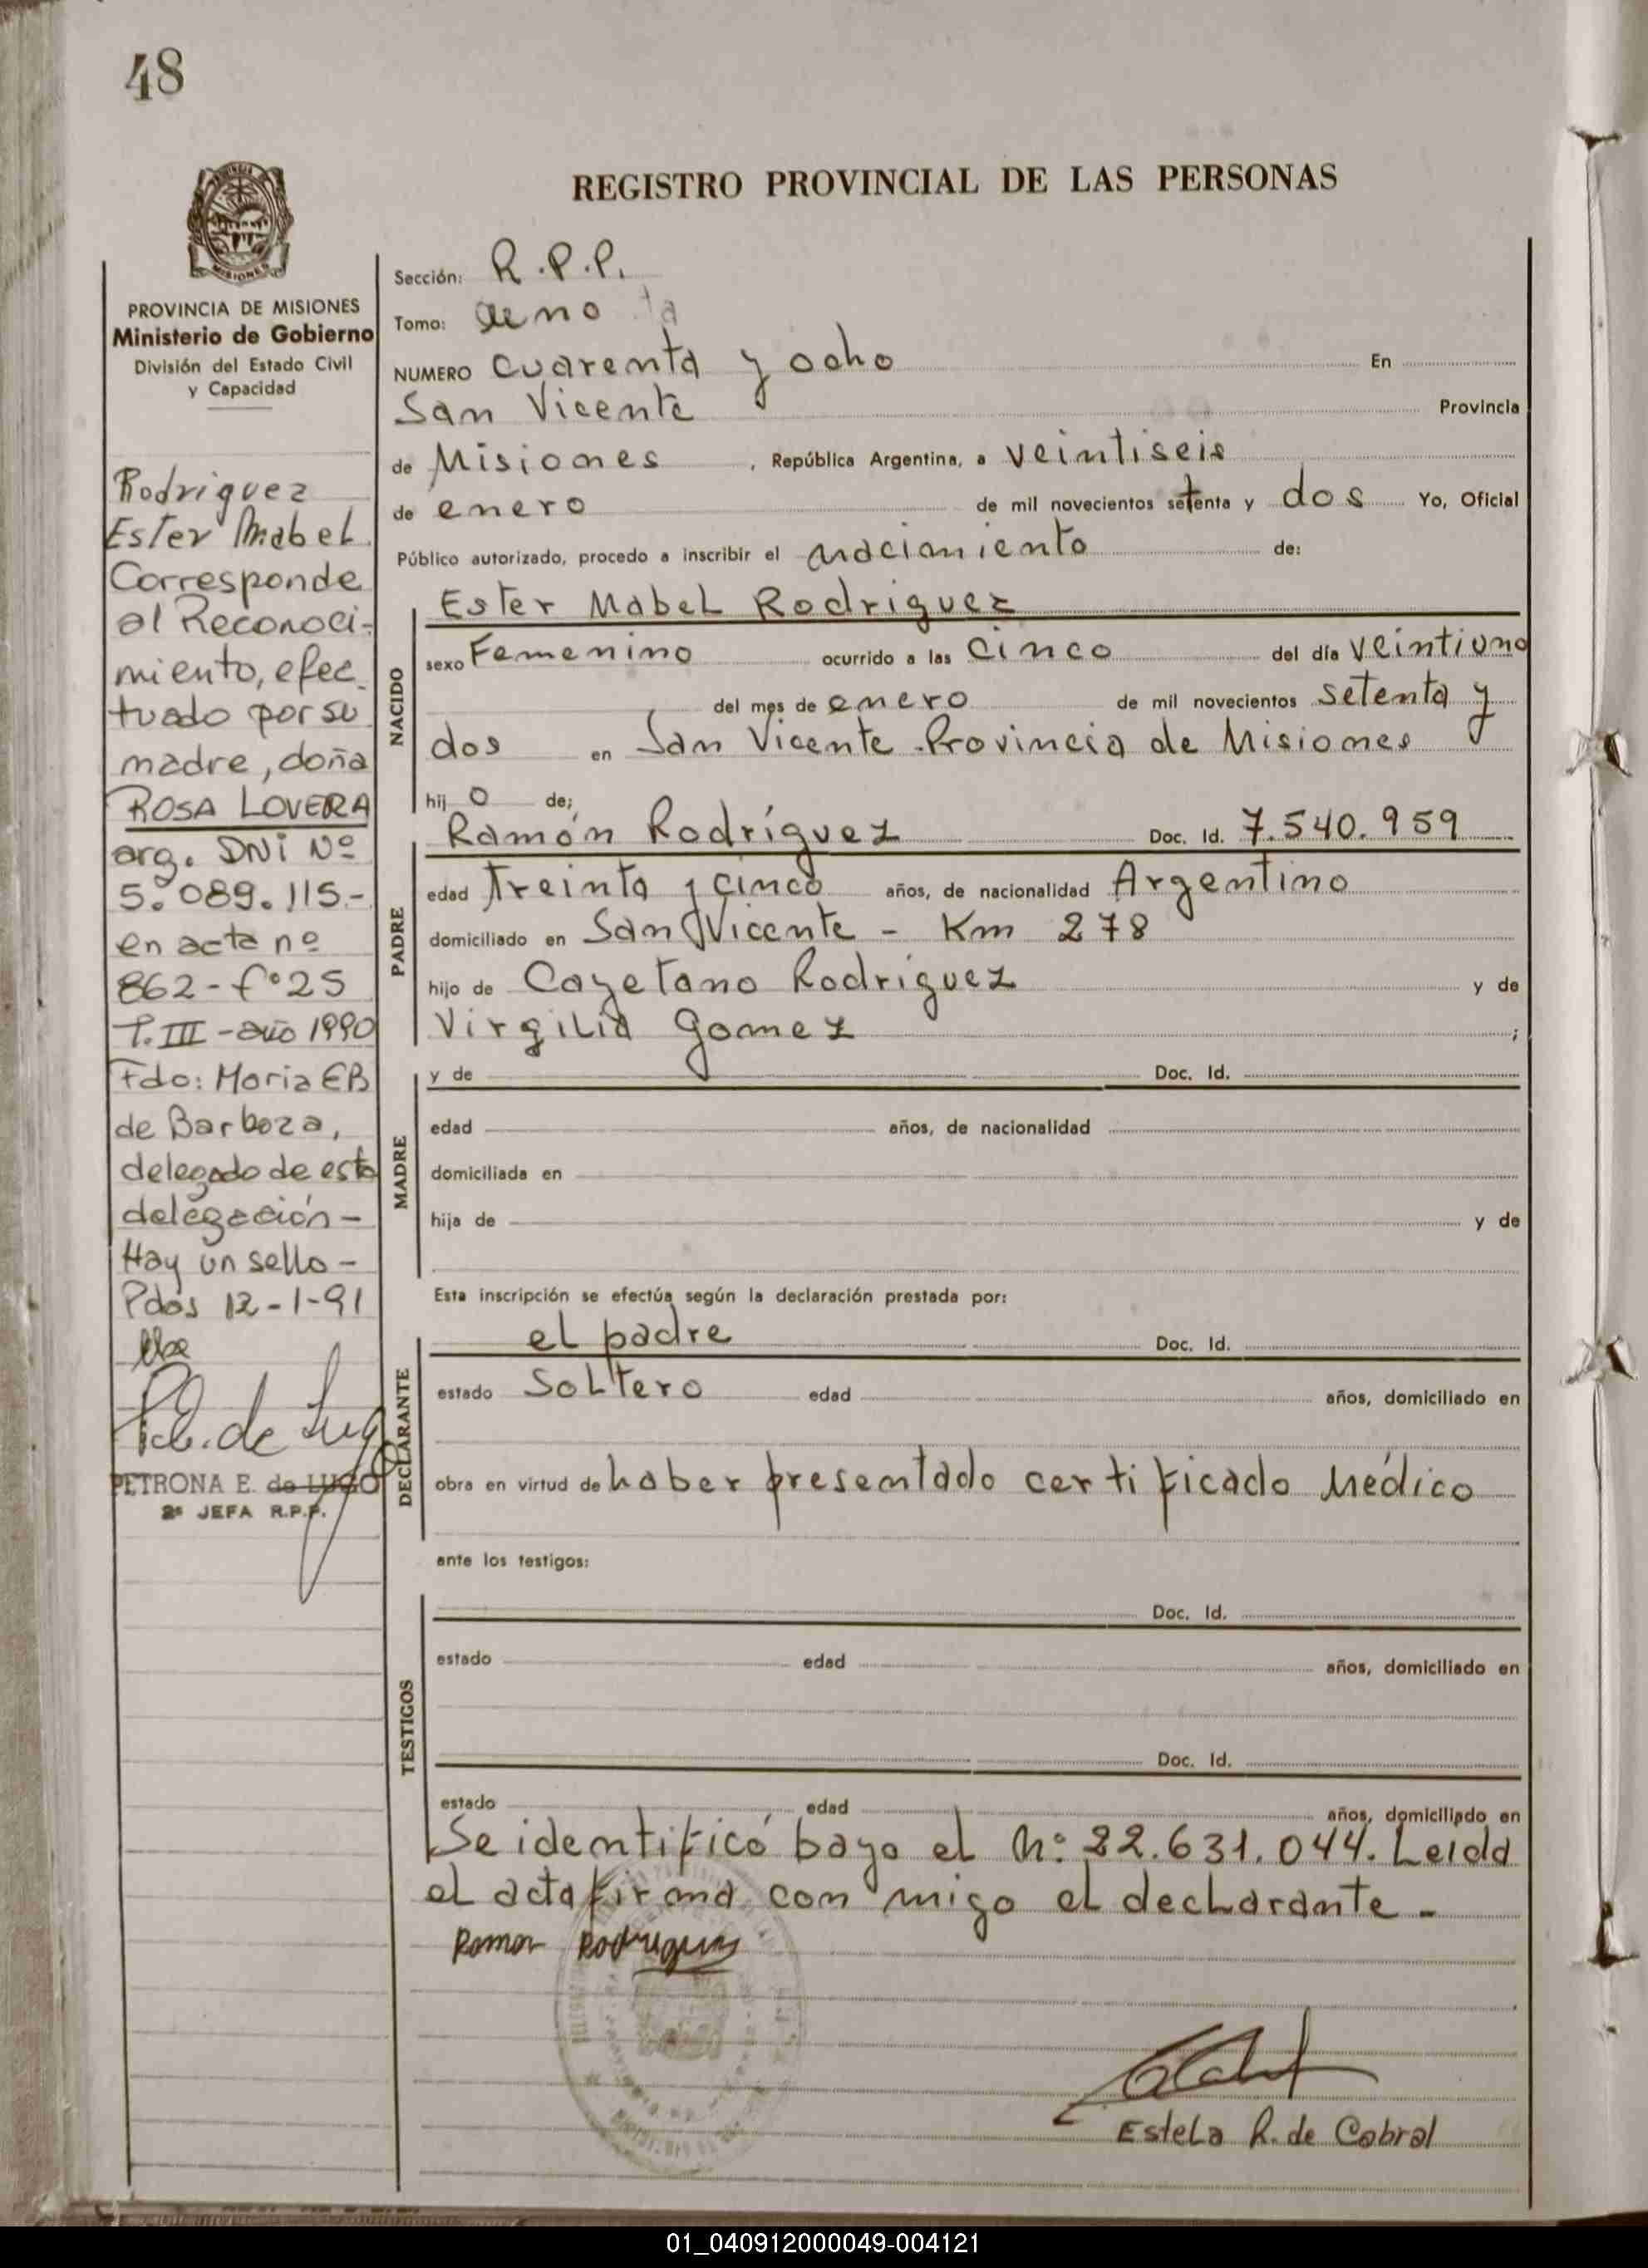 48
REGISTRO PROVINCIAL DE LAS PERSONAS
MISIONES
PROVINCIA DE MISIONES
Ministerio de Gobierno
División del Estado Civil
y Capacidad
Rodriguez
Ester Mabel
Corresponde
al Reconoci-
miento, efec-
tuado por su
madre, doña
ROSA LOVERA
arg. DNI Nº
5.089.115.-
en acta nº
862 - fº 25
T. III - año 1990
Fdo: Maria EB
de Barboza,
delegado de esta
delegación -
Hay un sello -
Pdas 12-1-91
PETRONA E. de LUGO
2ª JEFA R.P.P.
Sección: R.P.P.
Tomo: uno
NUMERO cuarenta y ocho En
San Vicente Provincia
de Misiones, República Argentina, a veintiseis
de enero de mil novecientos setenta y dos Yo, Oficial
Público autorizado, procedo a inscribir el nacimiento de:
NACIDO
Ester Mabel Rodriguez
sexo Femenino ocurrido a las cinco del día veintiuno
del mes de enero de mil novecientos setenta y
dos en San Vicente Provincia de Misiones
hij o de;
PADRE
Ramón Rodríguez Doc. Id. 7.540.959
edad treinta y cinco años, de nacionalidad Argentino
domiciliado en San Vicente - Km 278
hijo de Cayetano Rodríguez y de
Virgilia Gomez ;
MADRE
y de Doc. Id.
edad años, de nacionalidad
domiciliada en
hija de y de
Esta inscripción se efectúa según la declaración prestada por:
DECLARANTE
el padre Doc. Id.
estado Soltero edad años, domiciliado en
obra en virtud de haber presentado certificado Médico
ante los testigos:
TESTIGOS
Doc. Id.
estado edad años, domiciliado en
Doc. Id.
estado edad años, domiciliado en
Se identificó bayo el Nº: 22.631.044. Leida
el acta firma con migo el declarante -
Ramon Rodriguez
Estela R. de Cabral
01_040912000049-004121